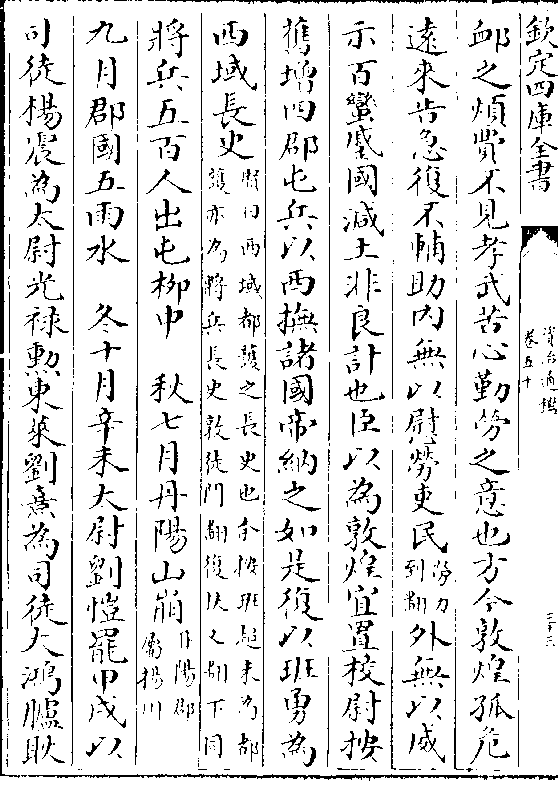 欽定四庫全書
資治通鑑
卷五十
三十三
䘏之煩費不見孝武苦心勤勞之意也方今敦煌孤危
遠來告急復不輔助内無以慰勞吏民勞力到翻外無以威
示百蠻蹙國減土非良計也臣以為敦煌宜置校尉按
舊增四郡屯兵以西撫諸國帝納之如是復以班勇為
西域長史賢曰西域都護之長史也余按班超未為都護亦為將兵長史敦徒門翻復扶又翻下同
將兵五百人出屯柳中　秋七月丹陽山崩丹陽郡屬揚州
九月郡國五雨水　冬十月辛未太尉劉愷罷甲戌以
司徒楊震為太尉光禄勲東萊劉熹為司徒大鴻臚耿